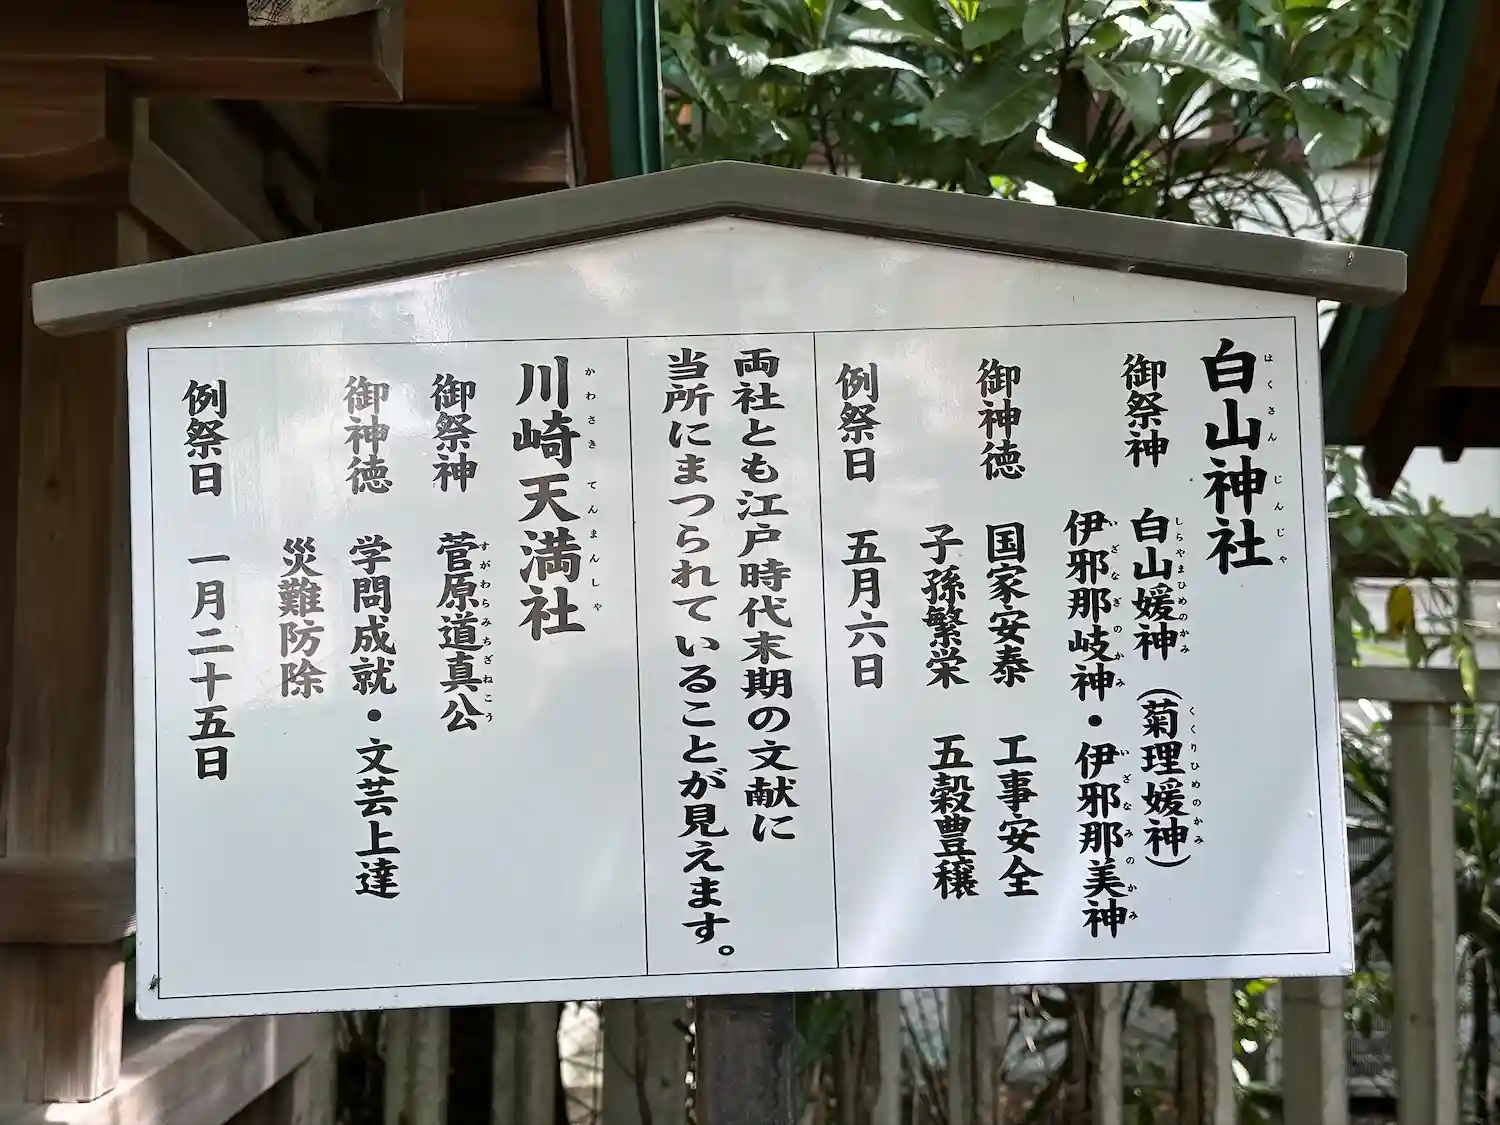 白山神社
はくさんじんじゃ
御祭神 白山媛神（菊理媛神）
しらやまひめのかみ くくりひめのかみ
伊邪那岐神・伊邪那美神
いざなぎのかみ いざなみのかみ
御神徳 国家安泰 工事安全
子孫繁栄 五穀豊穣
例祭日 五月六日
両社とも江戸時代末期の文献に
当所にまつられていることが見えます。
川崎天満社
かわさきてんまんしゃ
御祭神 菅原道真公
すがわらみちざねこう
御神徳 学問成就・文芸上達
災難防除
例祭日 一月二十五日